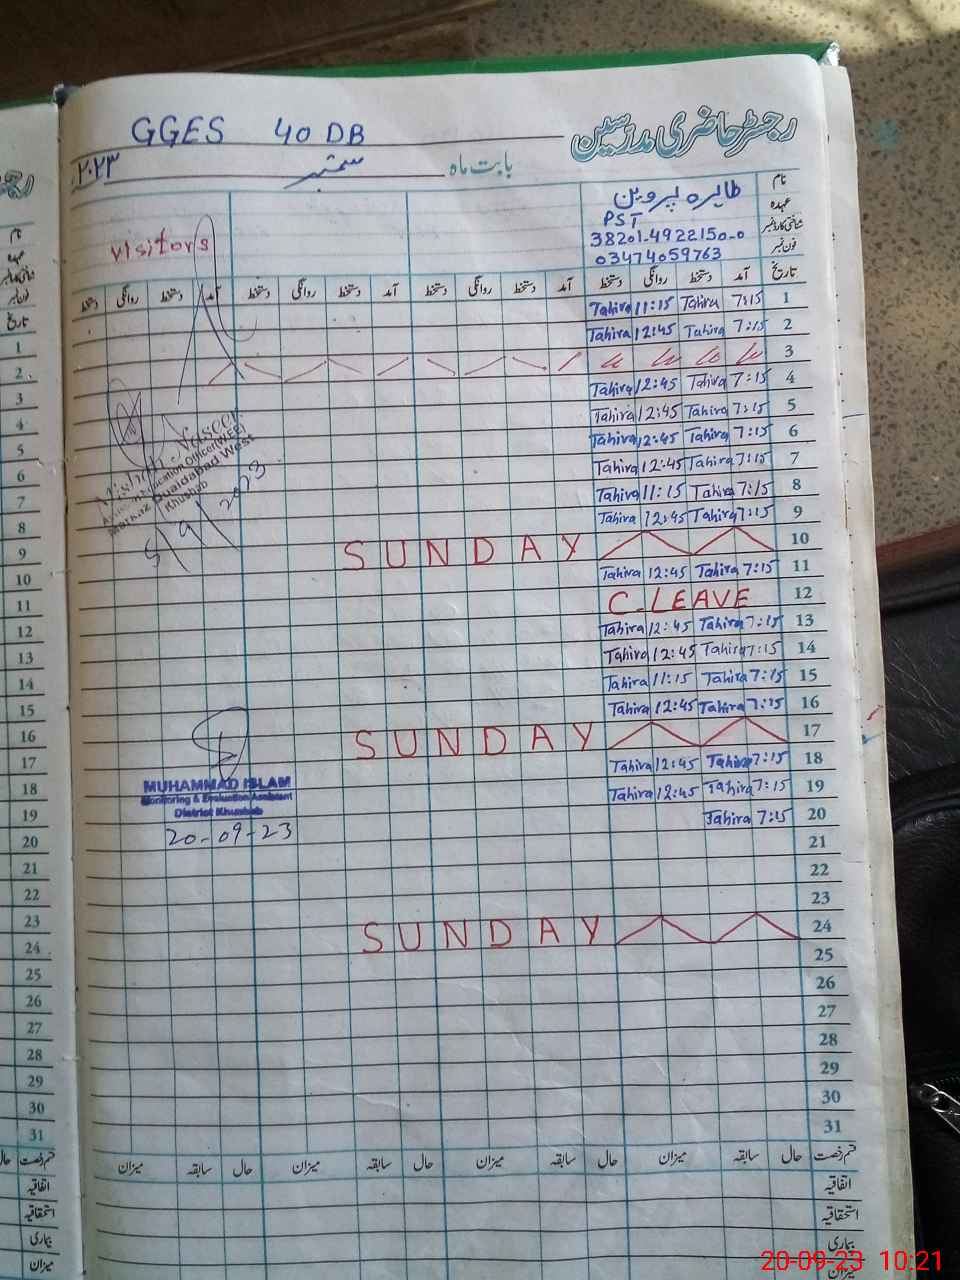 GGES 40 DB
رجسٹر حاضری مدرسین
بابت ماہ ستمبر ۲۰۲۳
نام طاہرہ پروین
عہدہ PST
شناختی کارڈ نمبر 38201-4922150-0
فون نمبر 03474059763
visitors
تاریخ آمد دستخط روانگی دستخط آمد دستخط روانگی دستخط آمد دستخط روانگی دستخط
1 7:15 Tahira 11:15 Tahira
2 7:15 Tahira 12:45 Tahira
3
4 7:15 Tahira 12:45 Tahira
5 7:15 Tahira 12:45 Tahira
6 7:15 Tahira 12:45 Tahira
7 7:15 Tahira 12:45 Tahira
8 7:15 Tahira 11:15 Tahira
9 7:15 Tahira 12:45 Tahira
10 SUNDAY
11 7:15 Tahira 12:45 Tahira
12 C. LEAVE
13 7:15 Tahira 12:45 Tahira
14 7:15 Tahira 12:45 Tahira
15 7:15 Tahira 11:15 Tahira
16 7:15 Tahira 12:45 Tahira
17 SUNDAY
18 7:15 Tahira 12:45 Tahira
19 7:15 Tahira 12:45 Tahira
20 7:15 Tahira
21
22
23
24 SUNDAY
25
26
27
28
29
30
31
Naseer
Education Officer(W-EE)
Markaz Quaidabad West
Khushab
5/9/2023
MUHAMMAD ISLAM
Monitoring & Evaluation Assistant
District Khushab
20-09-23
قسم رخصت حال سابقہ میزان حال سابقہ میزان حال سابقہ میزان
اتفاقیہ
استحقاقیہ
بیماری
میزان
نام
تاریخ
1
2
3
4
5
6
7
8
9
10
11
12
13
14
15
16
17
18
19
20
21
22
23
24
25
26
27
28
29
30
31
قسم رخصت حال
اتفاقیہ
استحقاقیہ
بیماری
میزان
20-09-23 10:21